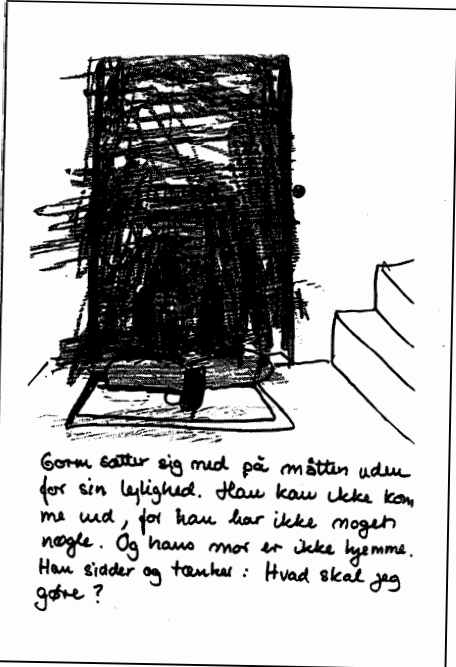 Gorm sætter sig ned på måtten uden
for sin lejlighed. Han kan ikke kom
me ind, for han har ikke nogen
nøgle. Og hans mor er ikke hjemme.
Han sidder og tænker : Hvad skal jeg
gøre ?